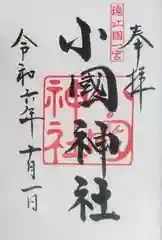 奉拝
遠江國一宮
小國神社
令和六年十月一日